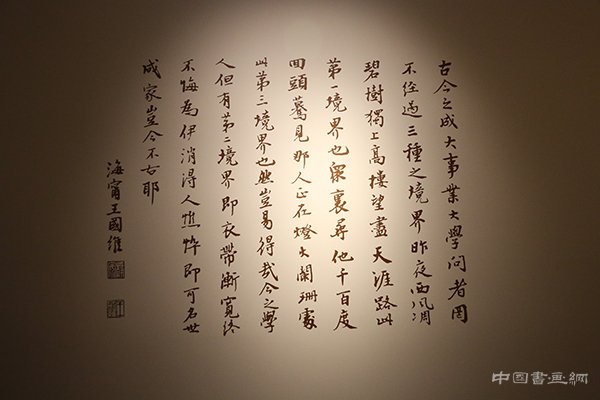 古今之成大事業大學問者罔
不经過三種之境界昨夜西風凋
碧樹獨上高樓望盡天涯路此
第一境界也眾裏尋他千百度
回頭驀見那人正在燈火闌珊處
此第三境界也然豈易得哉今之學
人但有第二境界即衣帶漸寬終
不悔為伊消得人憔悴即可名世
成家豈今不古耶
海甯王國維
中国書画網